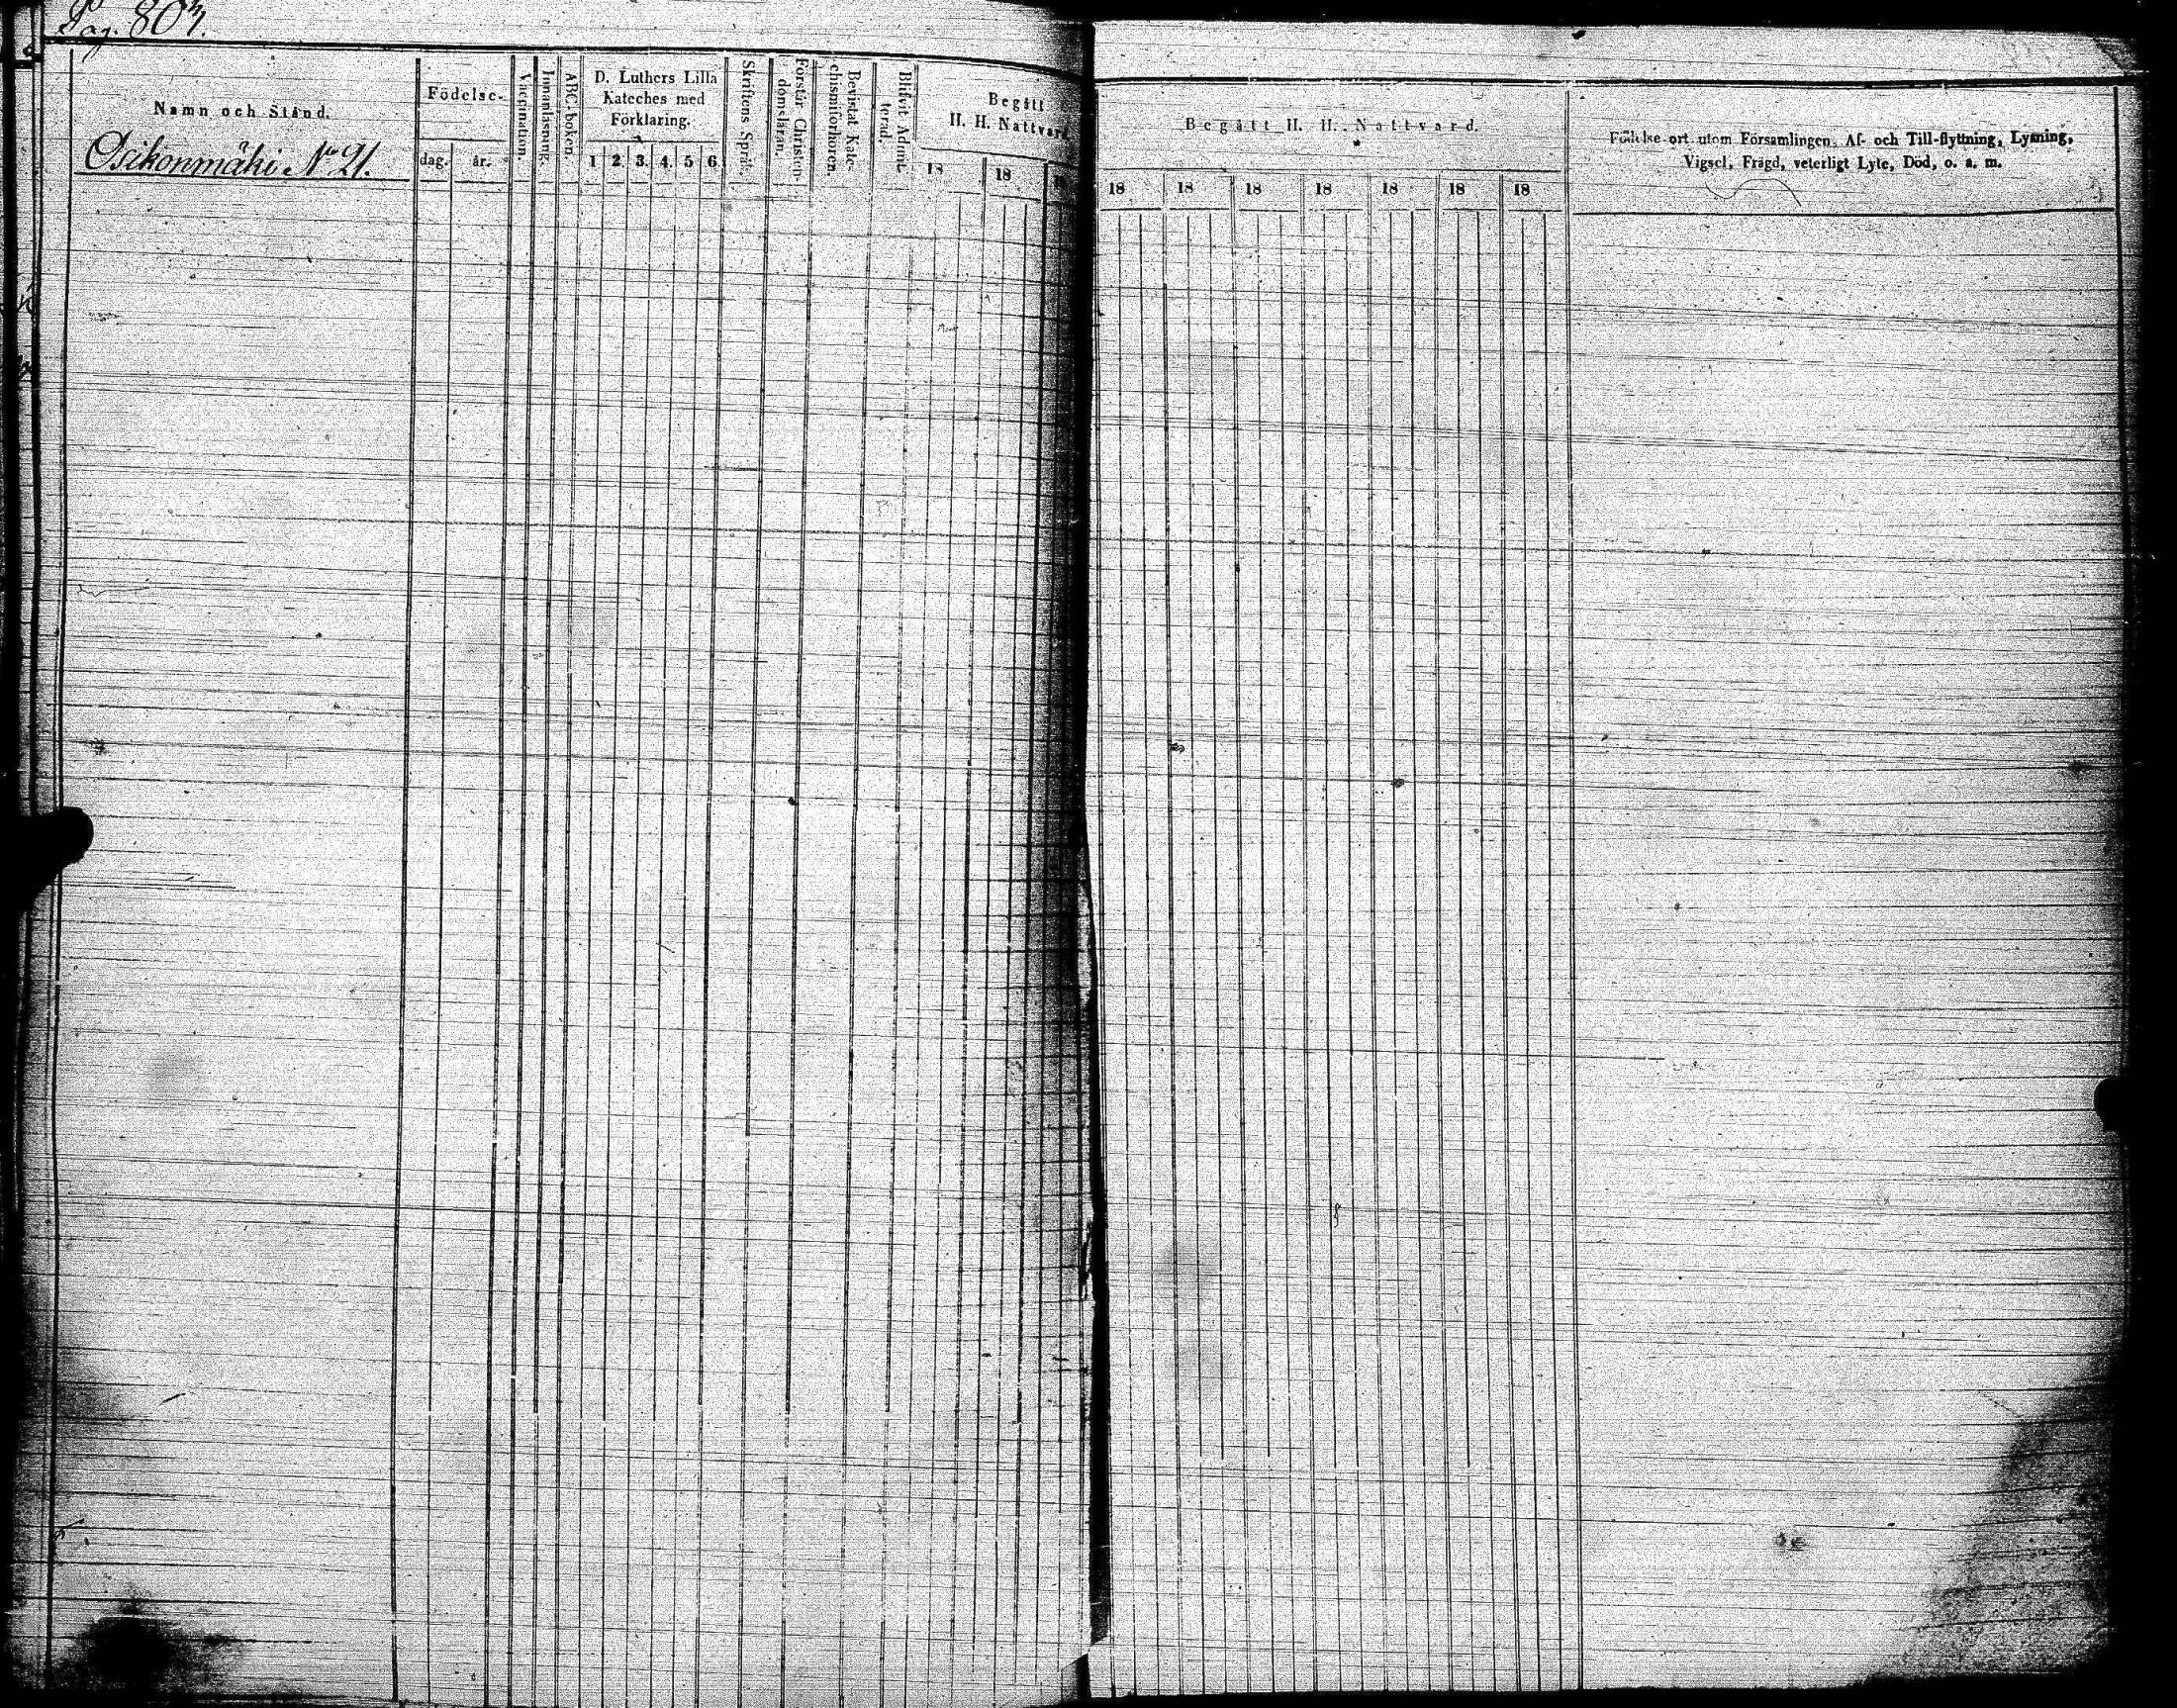 Pag. 807.
Namn och Stånd.
Osikonmäki No 21.
Födelse-
dag.
år.
Vaccination.
Innanläsning.
ABC-boken.
D. Luthers Lilla
Kateches med
Förklaring.
1 2. 3. 4. 5 6
Skriftens Språk.
Förstår Christen-
domsläran.
Bevistat Kate-
chismiförhören.
Blifvit Admit-
terad.
Begått
H. H. Nattvard.
18 18
Begått H. H. Nattvard.
18 18 18 18 18 18 18
Födelse-ort utom Församlingen, Af- och Till-flyttning, Lysning,
Vigsel, Frägd, veterligt Lyte, Död, o. a. m.